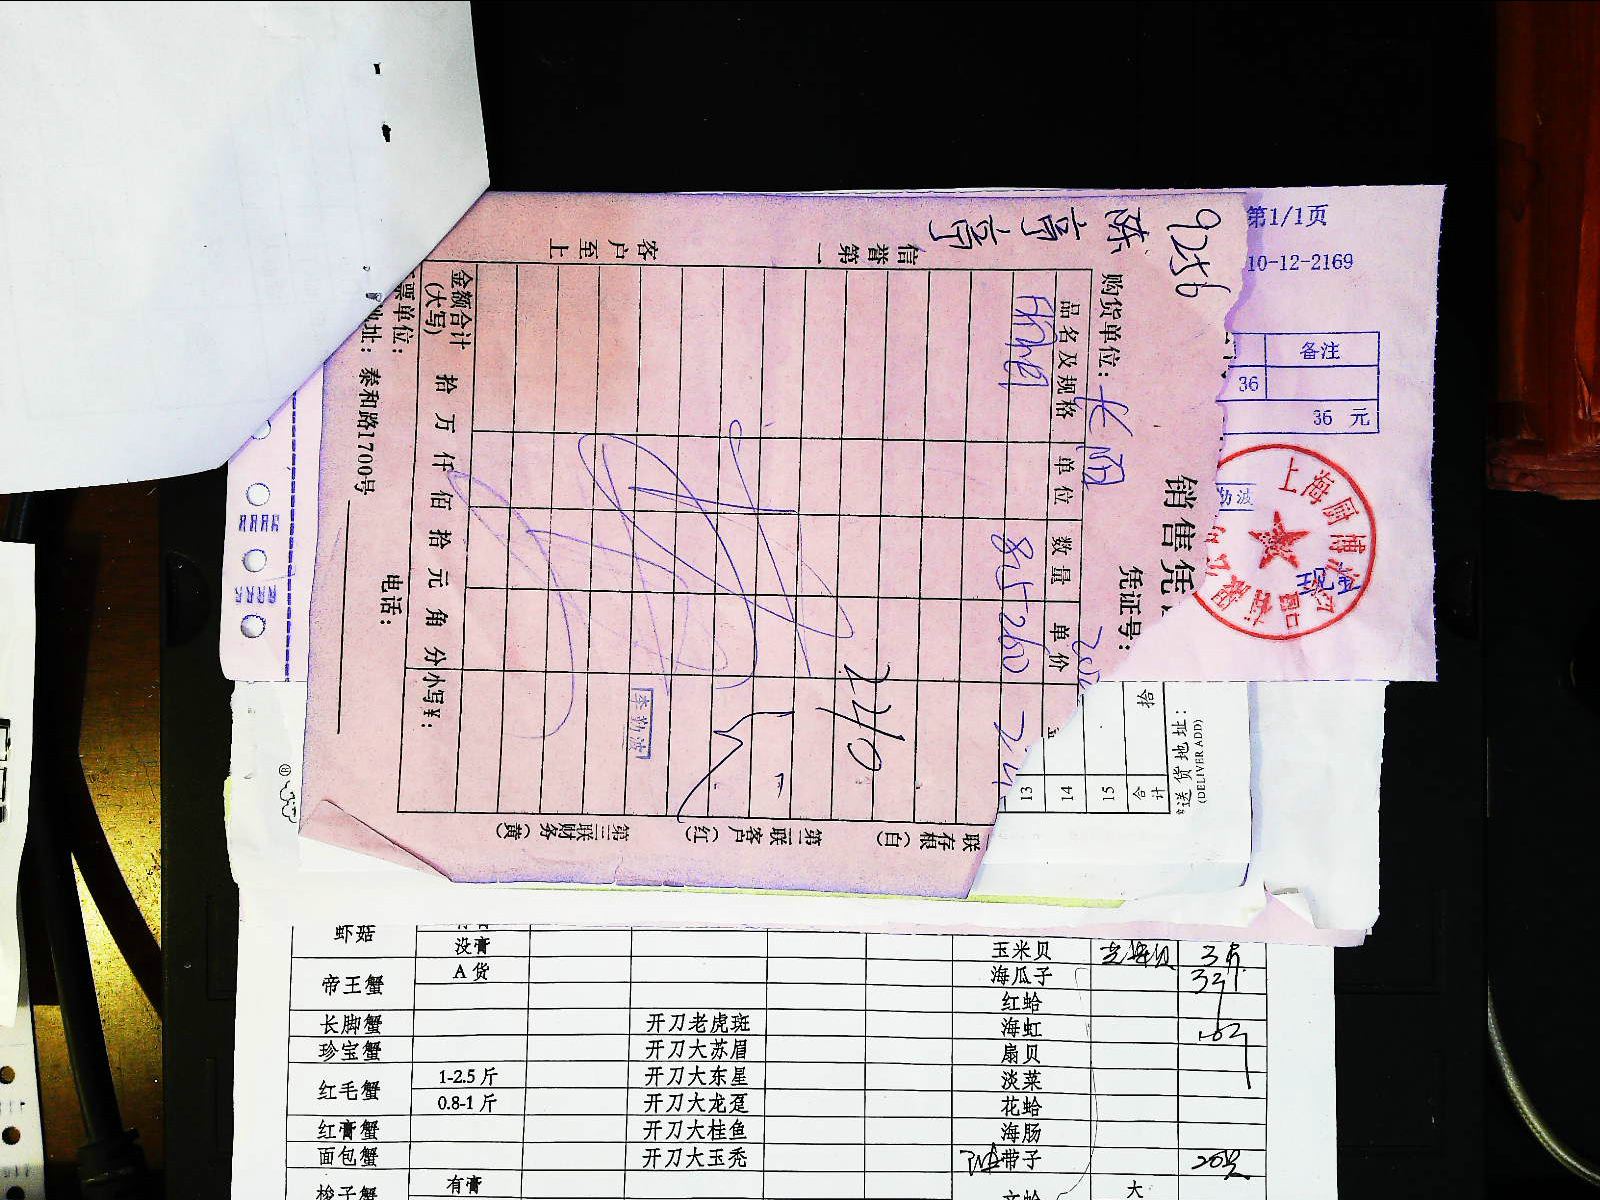 第1/1页
10-12-2169
备注
36
36 元
上海厨博
勒波
9256
陈亨亨
信誉第一
客户至上
销售凭
凭证号：
购货单位：长阳
品名及规格
单位
数量
单价
85 260
2210
金额合计
(大写)
拾 万 仟 佰 拾 元 角 分
小写¥：
票单位：
地址：泰和路1700号
电话：
李勒波
联存根（白）
第二联客户（红）
第三联财务（黄）
送货地址：
(DELIVER ADD)
拾
合计
15
14
13
®
虾菇
没膏
玉米贝
3斤
帝王蟹
A 货
海瓜子
红蛤
长脚蟹
开刀老虎斑
海虹
珍宝蟹
开刀大苏眉
扇贝
红毛蟹
1-2.5 斤
开刀大东星
淡菜
0.8-1 斤
开刀大龙趸
花蛤
红膏蟹
开刀大桂鱼
海肠
面包蟹
开刀大玉秃
带子
梭子蟹
有膏
文蛤
大